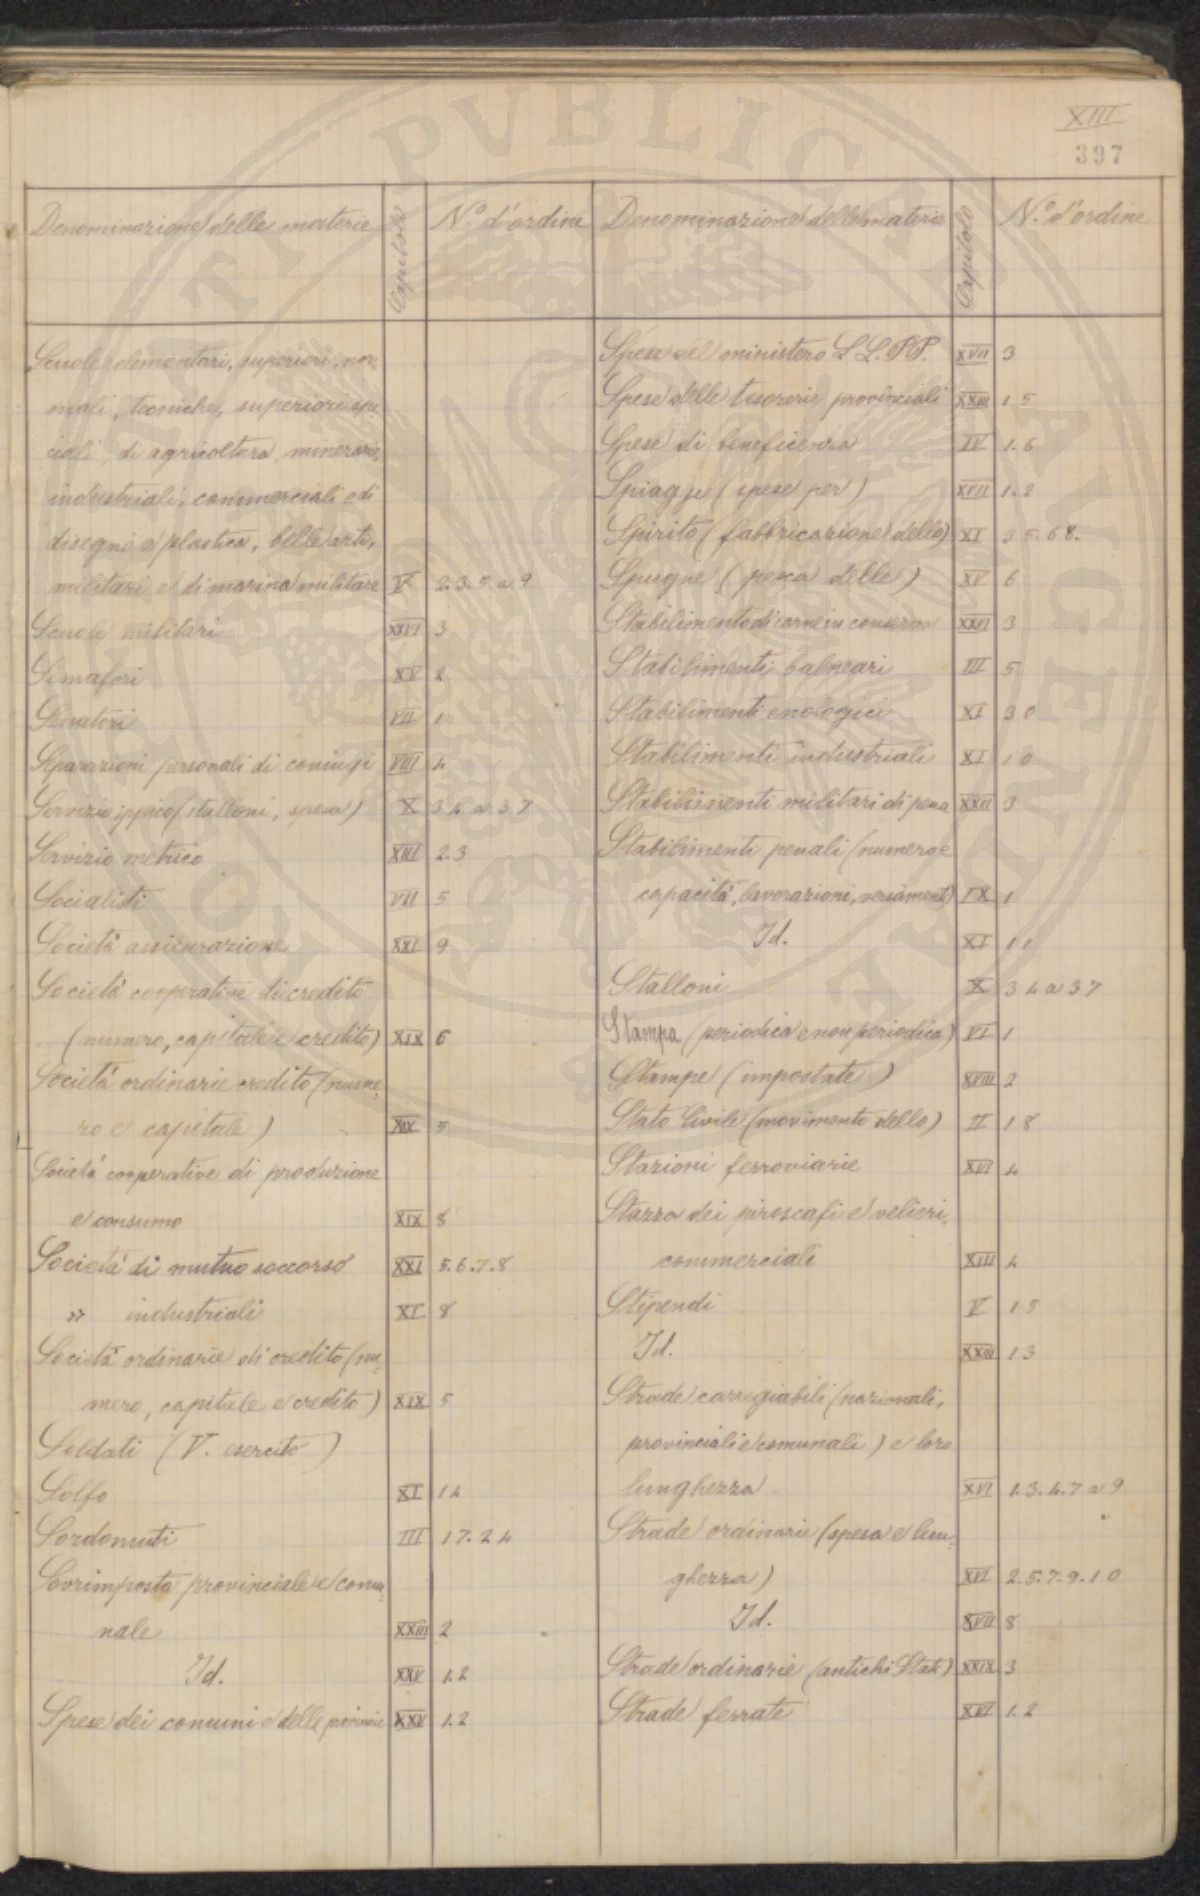 XIII
397
Denominazione delle materie Capitolo N.º d'ordine
Scuole elementari, superiori, nor-
mali, tecniche, superiori spe-
ciali, di agricoltura, minerarie,
industriali, commerciali e di
disegno e plastica, belle arti,
militari e di marina militare V 2.3.5 a 9
Scuole militari XXVI 3
Semafori XV 2
Senatori VII 1
Separazioni personali di coniugi VIII 4
Servizio ippico (stalloni, spesa) X 34 a 37
Servizio metrico XIII 2.3
Socialisti VII 5
Società assicurazione XXI 9
Società cooperative di credito
(numero, capitale e credito) XIX 6
Società ordinarie credito (nume-
ro e capitale) XIX 5
Società cooperative di produzione
e consumo XIX 8
Società di mutuo soccorso XXI 5.6.7.8
» industriali XI 8
Società ordinarie di credito (nu-
mero, capitale e credito) XIX 5
Soldati (V. esercito)
Solfo XI 14
Sordomuti III 17.24
Sovrimposta provinciale e comu-
nale XXIII 2
Id. XXV 1.2
Spese dei comuni e delle provincie XXV 1.2
Denominazione delle materie Capitolo N.º d'ordine
Spese del ministero LL.PP. XVII 3
Spese delle tesorerie provinciali XXIII 15
Spese di beneficenza IV 1.6
Spiagge (spese per) XVII 1.2
Spirito (fabbricazione dello) XI 35.68.
Spugne (pesca delle) XV 6
Stabilimento di carne in conserva XXVI 3
Stabilimenti balneari III 5
Stabilimenti enologici XI 30
Stabilimenti industriali XI 10
Stabilimenti militari di pena XXII 3
Stabilimenti penali (numero e
capacità, lavorazioni, versamenti) IX 1
Id. XI 11
Stalloni X 34 a 37
Stampa (periodica e non periodica) VI 1
Stampe (impostate) XVIII 2
Stato Civile (movimento dello) II 18
Stazioni ferroviarie XVI 4
Stazza dei piroscafi e velieri
commerciali XIII 4
Stipendi V 15
Id. XXIII 13
Strade carregiabili (nazionali,
provinciali e comunali) e loro
lunghezza XVI 1.3.4.7 a 9
Strade ordinarie (spesa e lun-
ghezza) XVI 2.5.7.9.10
Id. XVII 8
Strade ordinarie (antichi Stati) XXIX 3
Strade ferrate XVI 1.2